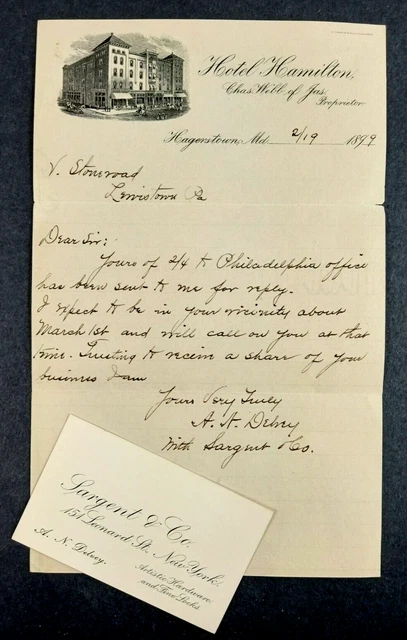 Hotel Hamilton,
Chas. Webb of Jas.
Proprietor
Hagerstown, Md. 2/19 1899
V. Stoneroad
Lewistown Pa
Dear Sir:
Yours of 2/4 to Philadelphia office
has been sent to me for reply.
I expect to be in your vicinity about
March 1st and will call on you at that
time. Trusting to receive a share of your
business I am
Yours Very Truly
A. N. Delvey
With Sargent & Co.
Sargent & Co.
151 Leonard St. New York.
A. N. Delvey.
Artistic Hardware
and Fine Locks